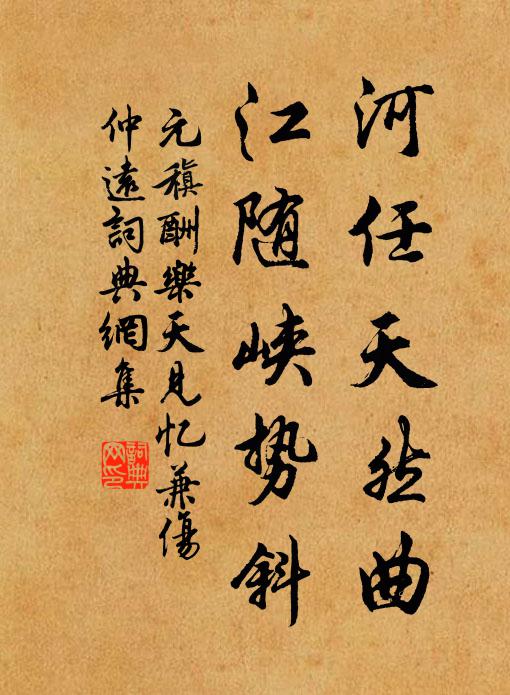 河任天然曲
江随峡势斜
元稹酬樂天見忆兼傷
仲遠詞典網集
詞典
网印